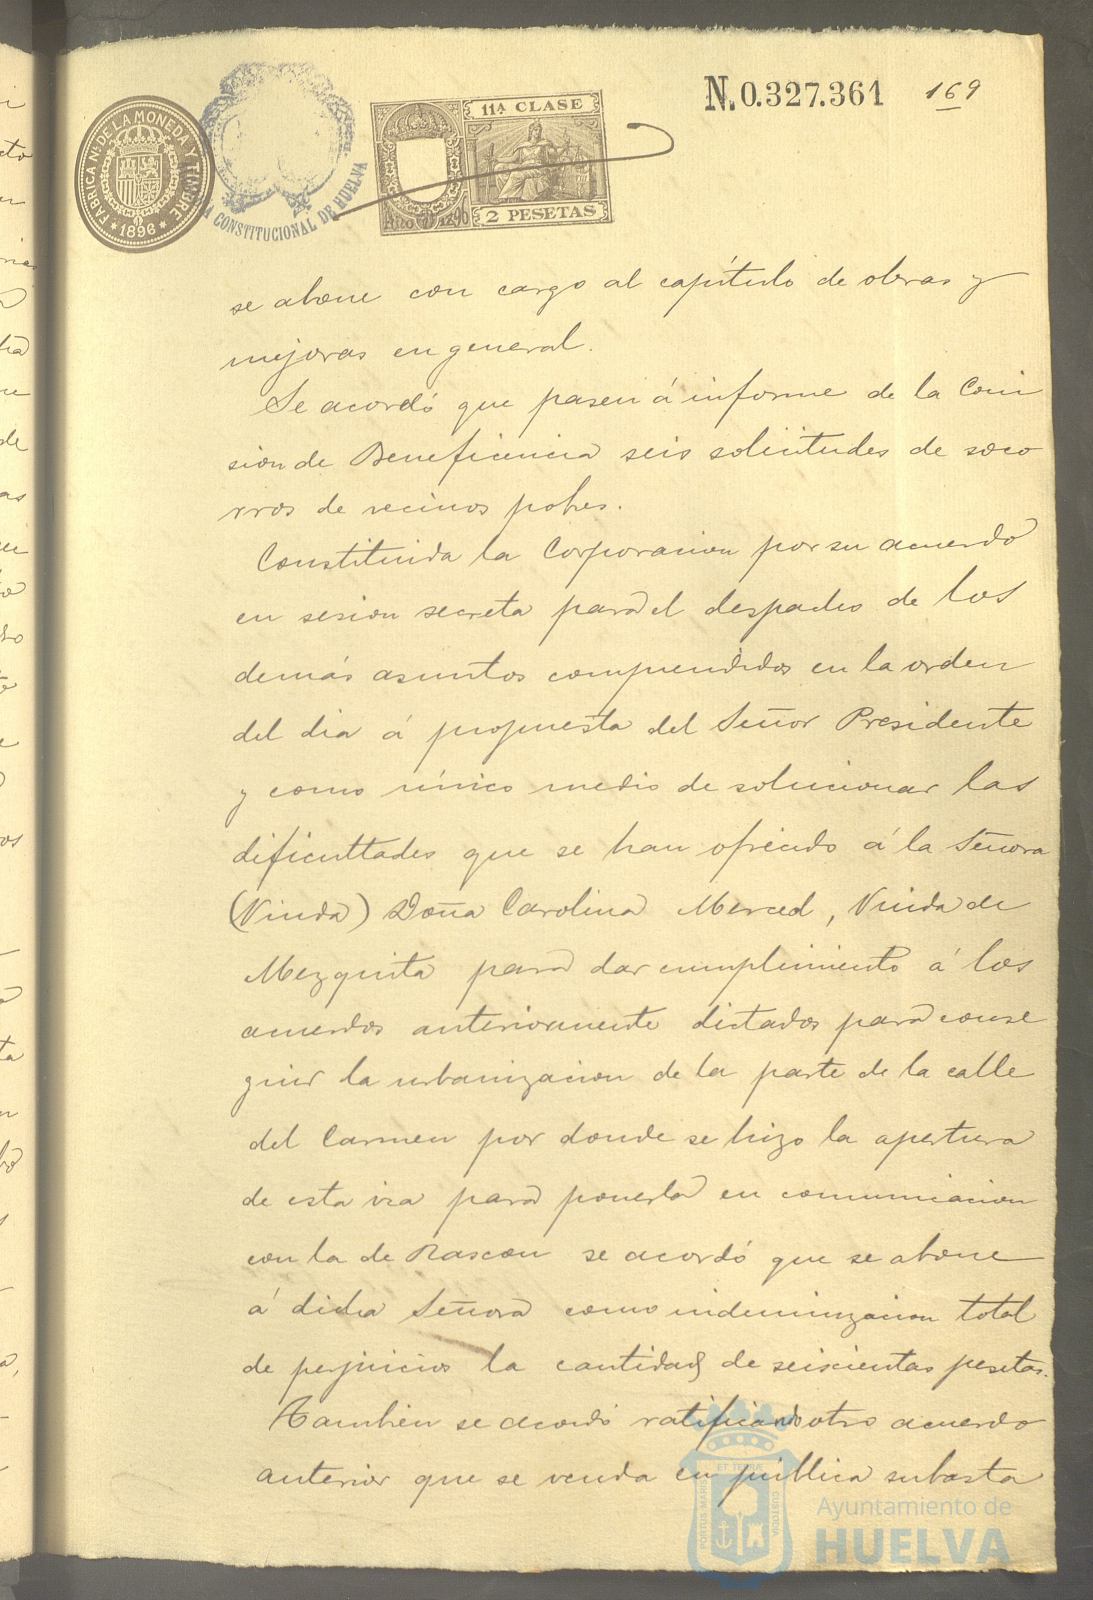 N. 0.327.361 169
FABRICA Nl. DE LA MONEDA Y TIMBRE
* 1896 *
A CONSTITUCIONAL DE HUELVA
11ª CLASE
2 PESETAS
se abone con cargo al capítulo de obras y
mejoras en general.
Se acordó que pasen á informe de la Comi
sion de Beneficencia seis solicitudes de soco
rros de vecinos pobres.
Constituida la Corporacion por su acuerdo
en sesion secreta para el despacho de los
demás asuntos comprendidos en la orden
del dia á propuesta del Señor Presidente
y como único medio de solucionar las
dificultades que se han ofrecido á la Señora
(Viuda) Doña Carolina Merced, Viuda de
Mezquita para dar cumplimiento á los
acuerdos anteriormente dictados para conse
guir la urbanizacion de la parte de la calle
del Carmen por donde se hizo la apertura
de esta via para ponerla en comunicacion
con la de Rascon se acordó que se abone
á dicha Señora como indemnizacion total
de perjuicios la cantidad de seiscientas pesetas.
Tambien se acordó ratificando otro acuerdo
anterior que se venda en pública subasta
PORTUS MARIS ET TERRÆ CUSTODIA
Ayuntamiento de
HUELVA